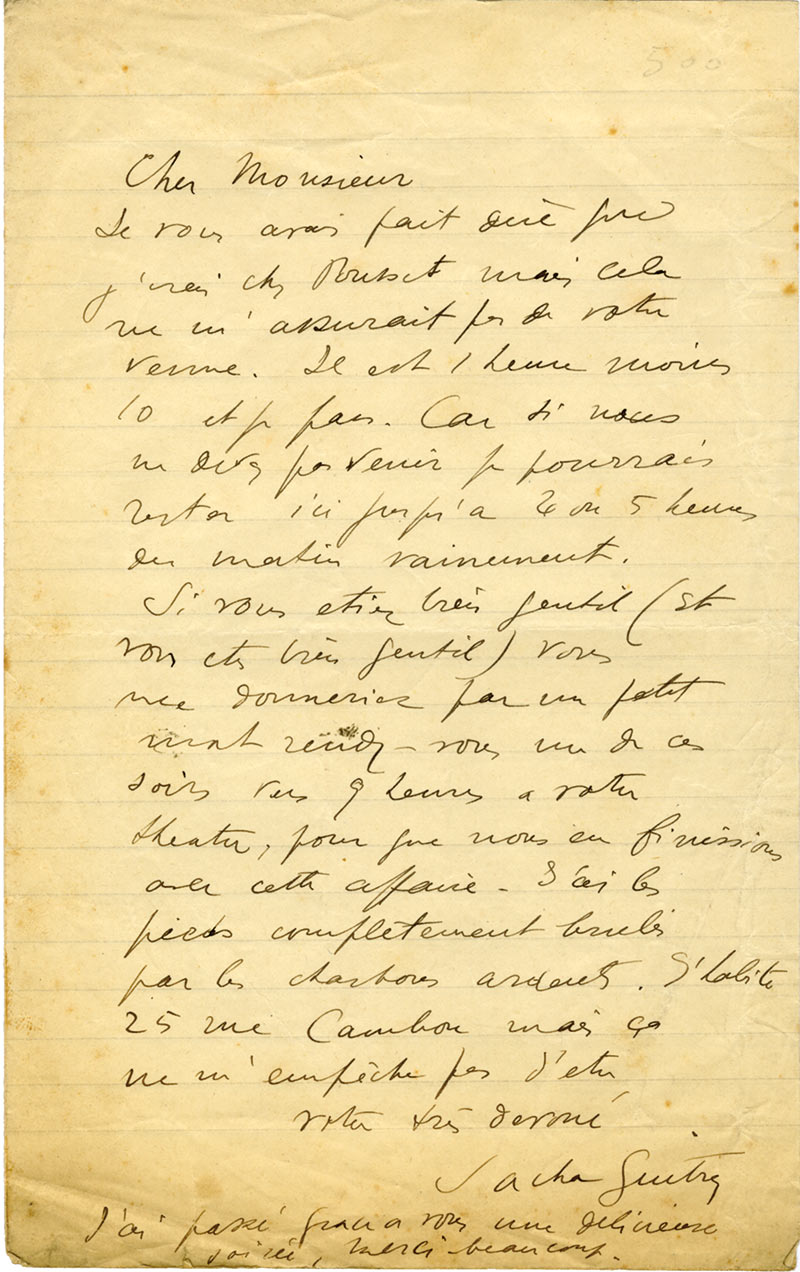 500
Cher Monsieur
Je vous avais fait dire que
j'irais chez Pousset mais cela
ne m'assurait pas de votre
venue. Il est 1 heure moins
10 et je pars. Car si vous
ne devez pas venir je pourrais
rester ici jusqu'a 4 ou 5 heures
du matin vainement.
Si vous etiez bien gentil (et
vous etes bien gentil) vous
me donneriez par un petit
mot rendez-vous un de ces
soirs vers 9 heures a votre
theatre, pour que nous en finissions
avec cette affaire - J'ai les
pieds completement brulés
par les charbons ardents. J'habite
25 rue Cambon mais ça
ne m'empêche pas d'etre
votre très devoué
Sacha Guitry
J'ai passé grace a vous une delicieuse
soirée, merci beaucoup.